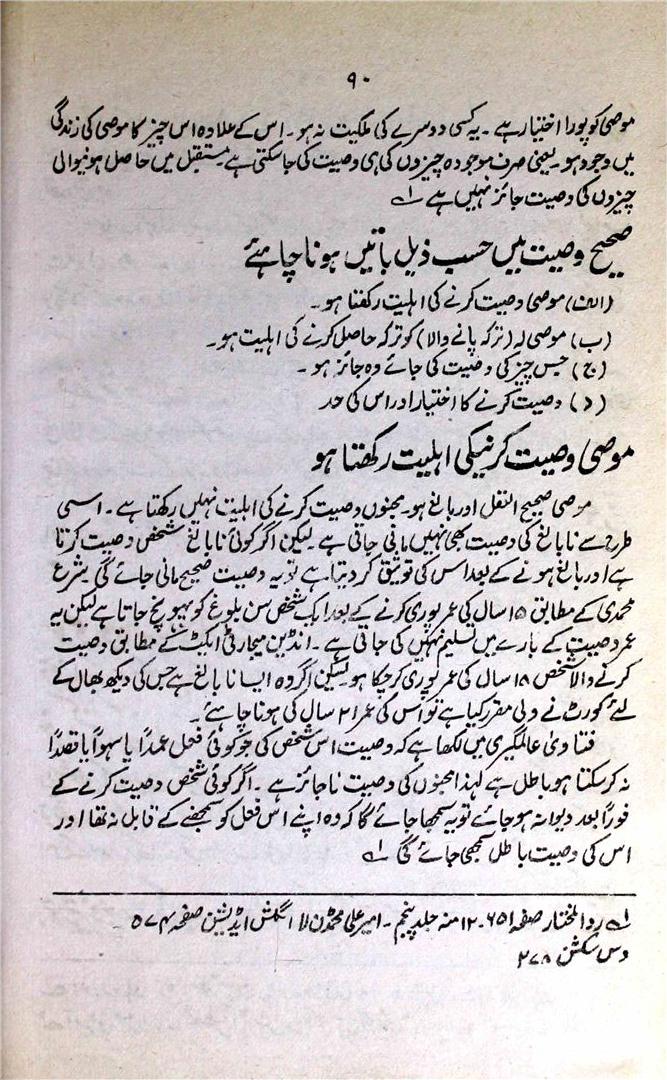 ۹۰
موصی کو پورا اختیار ہے ۔ یہ کسی دوسرے کی ملکیت نہ ہو ۔ اس کے علاوہ اس چیز کا موصی کی زندگی
میں وجود ہو ۔ یعنی صرف موجودہ چیزوں کی ہی وصیت کی جاسکتی ہے ۔ مستقبل میں حاصل ہونیوالی
چیزوں کی وصیت جائز نہیں ہے ۔ لہ
صحیح وصیت میں حسب ذیل باتیں ہونا چاہئے
(الف) موصی وصیت کرنے کی اہلیت رکھتا ہو ۔
(ب) موصی لہ (ترکہ پانے والا) کو ترکہ حاصل کرنے کی اہلیت ہو ۔
(ج) جس چیز کی وصیت کی جائے وہ جائز ہو ۔
(د) وصیت کرنے کا اختیار اور اس کی حد
موصی وصیت کرنیکی اہلیت رکھتا ہو
موصی صحیح العقل اور بالغ ہو ۔ مجنوں وصیت کرنے کی اہلیت نہیں رکھتا ہے ۔ اسی
طرح سے نابالغ کی وصیت بھی نہیں مانی جاتی ہے ۔ لیکن اگر کوئی نابالغ شخص وصیت کرتا
ہے اور بالغ ہونے کے بعد اس کی توثیق کر دیتا ہے تو یہ وصیت صحیح مانی جائے گی ۔ شرع
محمدی کے مطابق ۱۵ سال کی عمر پوری کرنے کے بعد ایک شخص سن بلوغ کو پہونچ جاتا ہے لیکن یہ
عمر وصیت کے بارے میں تسلیم نہیں کی جاتی ہے ۔ انڈین میجارٹی ایکٹ کے مطابق وصیت
کرنے والا شخص ۱۸ سال کی عمر پوری کرچکا ہو لیکن اگر وہ ایسا نابالغ ہے جس کی دیکھ بھال کے
لئے کورٹ نے ولی مقرر کیا ہے تو اس کی عمر ۲۱ سال کی ہونا چاہئے ۔
فتاویٰ عالمگیری میں لکھا ہے کہ وصیت اس شخص کی جو کوئی فعل عمداً یا سہواً یا قصداً
نہ کرسکتا ہو باطل ہے لہذا مجنوں کی وصیت ناجائز ہے ۔ اگر کوئی شخص وصیت کرنے کے
فوراً بعد دیوانہ ہو جائے تو یہ سمجھا جائے گا کہ وہ اپنے اس فعل کو سمجھنے کے قابل نہ تھا اور
اس کی وصیت باطل سمجھی جائے گی لہ
لہ رد المختار صفحہ ۶۵۱ ۔ ۱۲ منہ جلد پنجم ۔ امیر علی محمڈن لا انگلش ایڈیشن صفحہ ۵۷۴
وس سکشن ۲۷۸